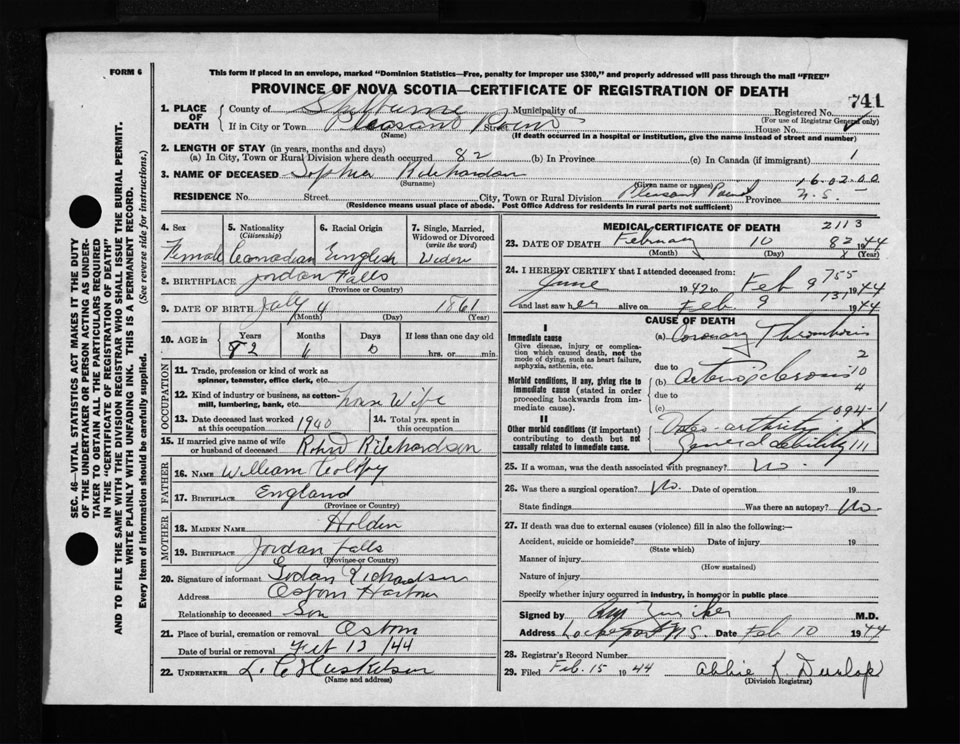 FORM 6
This form if placed in an envelope, marked "Dominion Statistics—Free, penalty for improper use $300," and properly addressed will pass through the mail "FREE"
PROVINCE OF NOVA SCOTIA—CERTIFICATE OF REGISTRATION OF DEATH
741
1. PLACE OF DEATH
County of Shelburne Municipality of Registered No.
(For use of Registrar General only)
If in City or Town Pleasant Point Street House No.
(Name) (If death occurred in a hospital or institution, give the name instead of street and number)
2. LENGTH OF STAY (in years, months and days)
(a) In City, Town or Rural Division where death occurred 82 (b) In Province (c) In Canada (if immigrant) 1
3. NAME OF DECEASED Sophia Richardson
(Surname) (Given name or names) 16.02.00
RESIDENCE No. Street City, Town or Rural Division Pleasant Point Province N.S.
(Residence means usual place of abode. Post Office Address for residents in rural parts not sufficient)
4. Sex Female
5. Nationality (Citizenship) Canadian
6. Racial Origin English
7. Single, Married, Widowed or Divorced (write the word) Widow
8. BIRTHPLACE Jordan Falls
(Province or Country)
9. DATE OF BIRTH July 4 1861
(Month) (Day) (Year)
10. AGE in Years Months Days If less than one day old
82 hrs. or min.
OCCUPATION
11. Trade, profession or kind of work as spinner, teamster, office clerk, etc.
12. Kind of industry or business, as cotton-mill, lumbering, bank, etc. House Wife
13. Date deceased last worked at this occupation 1940
14. Total yrs. spent in this occupation
15. If married give name of wife or husband of deceased Richardson
FATHER
16. NAME William
17. BIRTHPLACE England
(Province or Country)
MOTHER
18. MAIDEN NAME Holden
19. BIRTHPLACE Jordan Falls
(Province or Country)
20. Signature of informant Richardson
Address Harbour
Relationship to deceased Son
21. Place of burial, cremation or removal
Date of burial or removal Feb 13/44
22. UNDERTAKER L. C. Huskilson
(Name and address)
MEDICAL CERTIFICATE OF DEATH 2113
23. DATE OF DEATH February 10 82 1944
(Month) (Day) (Year)
24. I HEREBY CERTIFY that I attended deceased from: 755
June 1942 to Feb 9 1944
731
and last saw her alive on Feb 9 1944
CAUSE OF DEATH
I
Immediate cause
Give disease, injury or complication which caused death, not the mode of dying, such as heart failure, asphyxia, asthenia, etc.
(a) Coronary Thrombosis
due to
Morbid conditions, if any, giving rise to immediate cause (stated in order proceeding backwards from immediate cause).
(b) Arteriosclerosis
due to
(c) 094-1
II
Other morbid conditions (if important) contributing to death but not causally related to immediate cause.
Osteo-arthritis
General debility
25. If a woman, was the death associated with pregnancy? No.
26. Was there a surgical operation? No. Date of operation 19
State findings Was there an autopsy? No.
27. If death was due to external causes (violence) fill in also the following:—
Accident, suicide or homicide? Date of injury 19
(State which)
Manner of injury
(How sustained)
Nature of injury
Specify whether injury occurred in industry, in home or in public place
Signed by M.D.
Address Lockeport N.S. Date Feb 10 1944
28. Registrar's Record Number
29. Filed Feb. 15 1944 Abbie K. Dunlop
(Division Registrar)
SEC. 46—VITAL STATISTICS ACT MAKES IT THE DUTY OF THE UNDERTAKER OR PERSON ACTING AS UNDERTAKER TO OBTAIN ALL THE PARTICULARS REQUIRED IN THE "CERTIFICATE OF REGISTRATION OF DEATH" AND TO FILE THE SAME WITH THE DIVISION REGISTRAR WHO SHALL ISSUE THE BURIAL PERMIT.
WRITE PLAINLY WITH UNFADING INK. THIS IS A PERMANENT RECORD.
Every item of information should be carefully supplied. (See reverse side for instructions.)